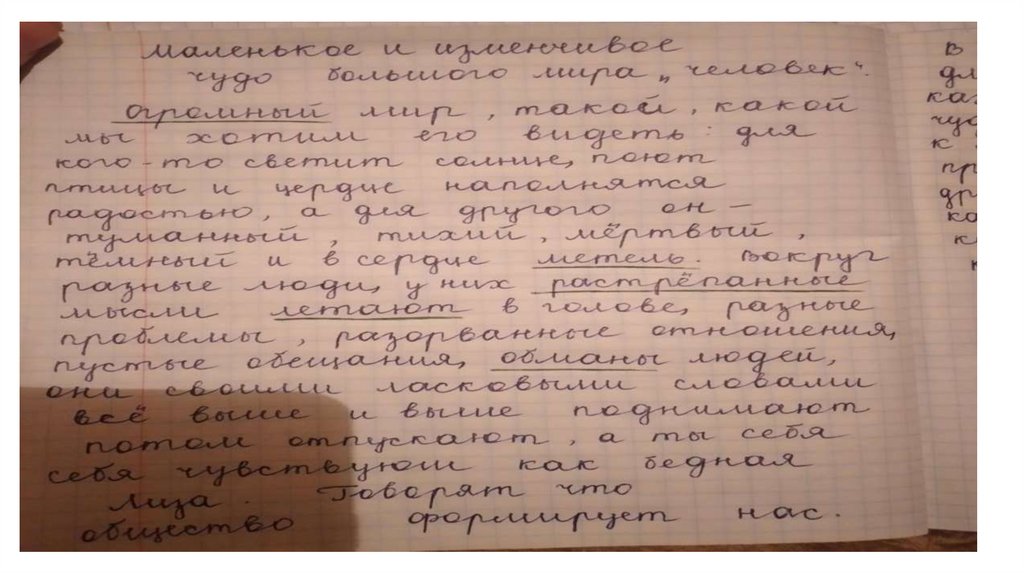 маленькое и изменчивое
чудо большого мира „человек“.
Огромный мир, такой, какой
мы хотим его видеть: для
кого-то светит солнце, поют
птицы и цердце наполнятся
радостью, а для другого он –
туманный, тихий, мёртвый,
тёмный и в сердце метель. Вокруг
разные люди, у них растрёпанные
мысли летают в голове, разные
проблемы, разорванные отношения,
пустые обещания, обманы людей,
они своими ласковыми словами
всё выше и выше поднимают
потом отпускают, а ты себя
себя чувствуюш как бедная
Лиза. Говорят что
общество формирует нас.
В
дл
ка
чуд
к
пр
др
ка
к